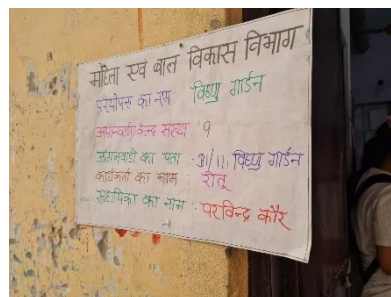 महिला एवं बाल विकास विभाग
परियोजना का नाम विष्णु गार्डन
आंगनवाडी केन्द्र संख्या 9
आंगनवाडी का पता : विष्णु गार्डन
कार्यकर्ता का नाम : रीतू
सहायिका का नाम : परविन्द्र कौर